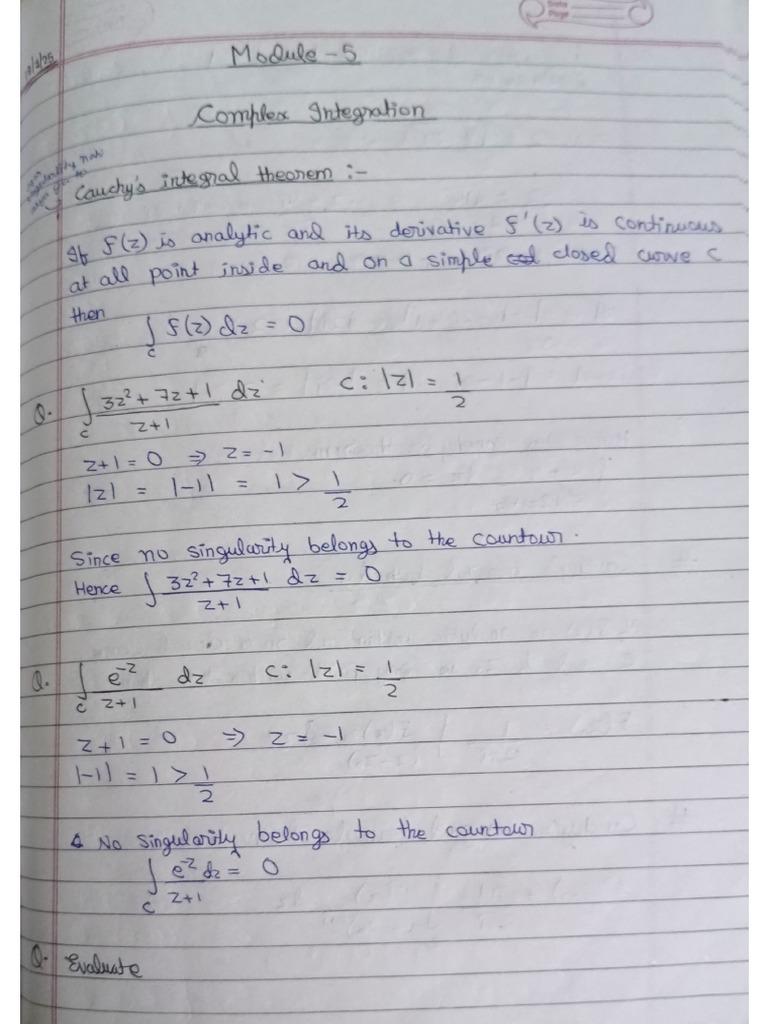 Module - 5
Complex Integration
Cauchy's integral theorem :-
If f(z) is analytic and its derivative f'(z) is continuous
at all point inside and on a simple closed curve c
then
∫_c f(z) dz = 0
Q. ∫_c (3z² + 7z + 1)/(z+1) dz    C: |z| = 1/2
z+1 = 0 ⇒ z = -1
|z| = |-1| = 1 > 1/2
Since no singularity belongs to the countour.
Hence ∫ (3z² + 7z + 1)/(z+1) dz = 0
Q. ∫_c e^-z/(z+1) dz    C: |z| = 1/2
z+1 = 0 ⇒ z = -1
|-1| = 1 > 1/2
No singularity belongs to the countour
∫_c e^-z/(z+1) dz = 0
Q. Evaluate